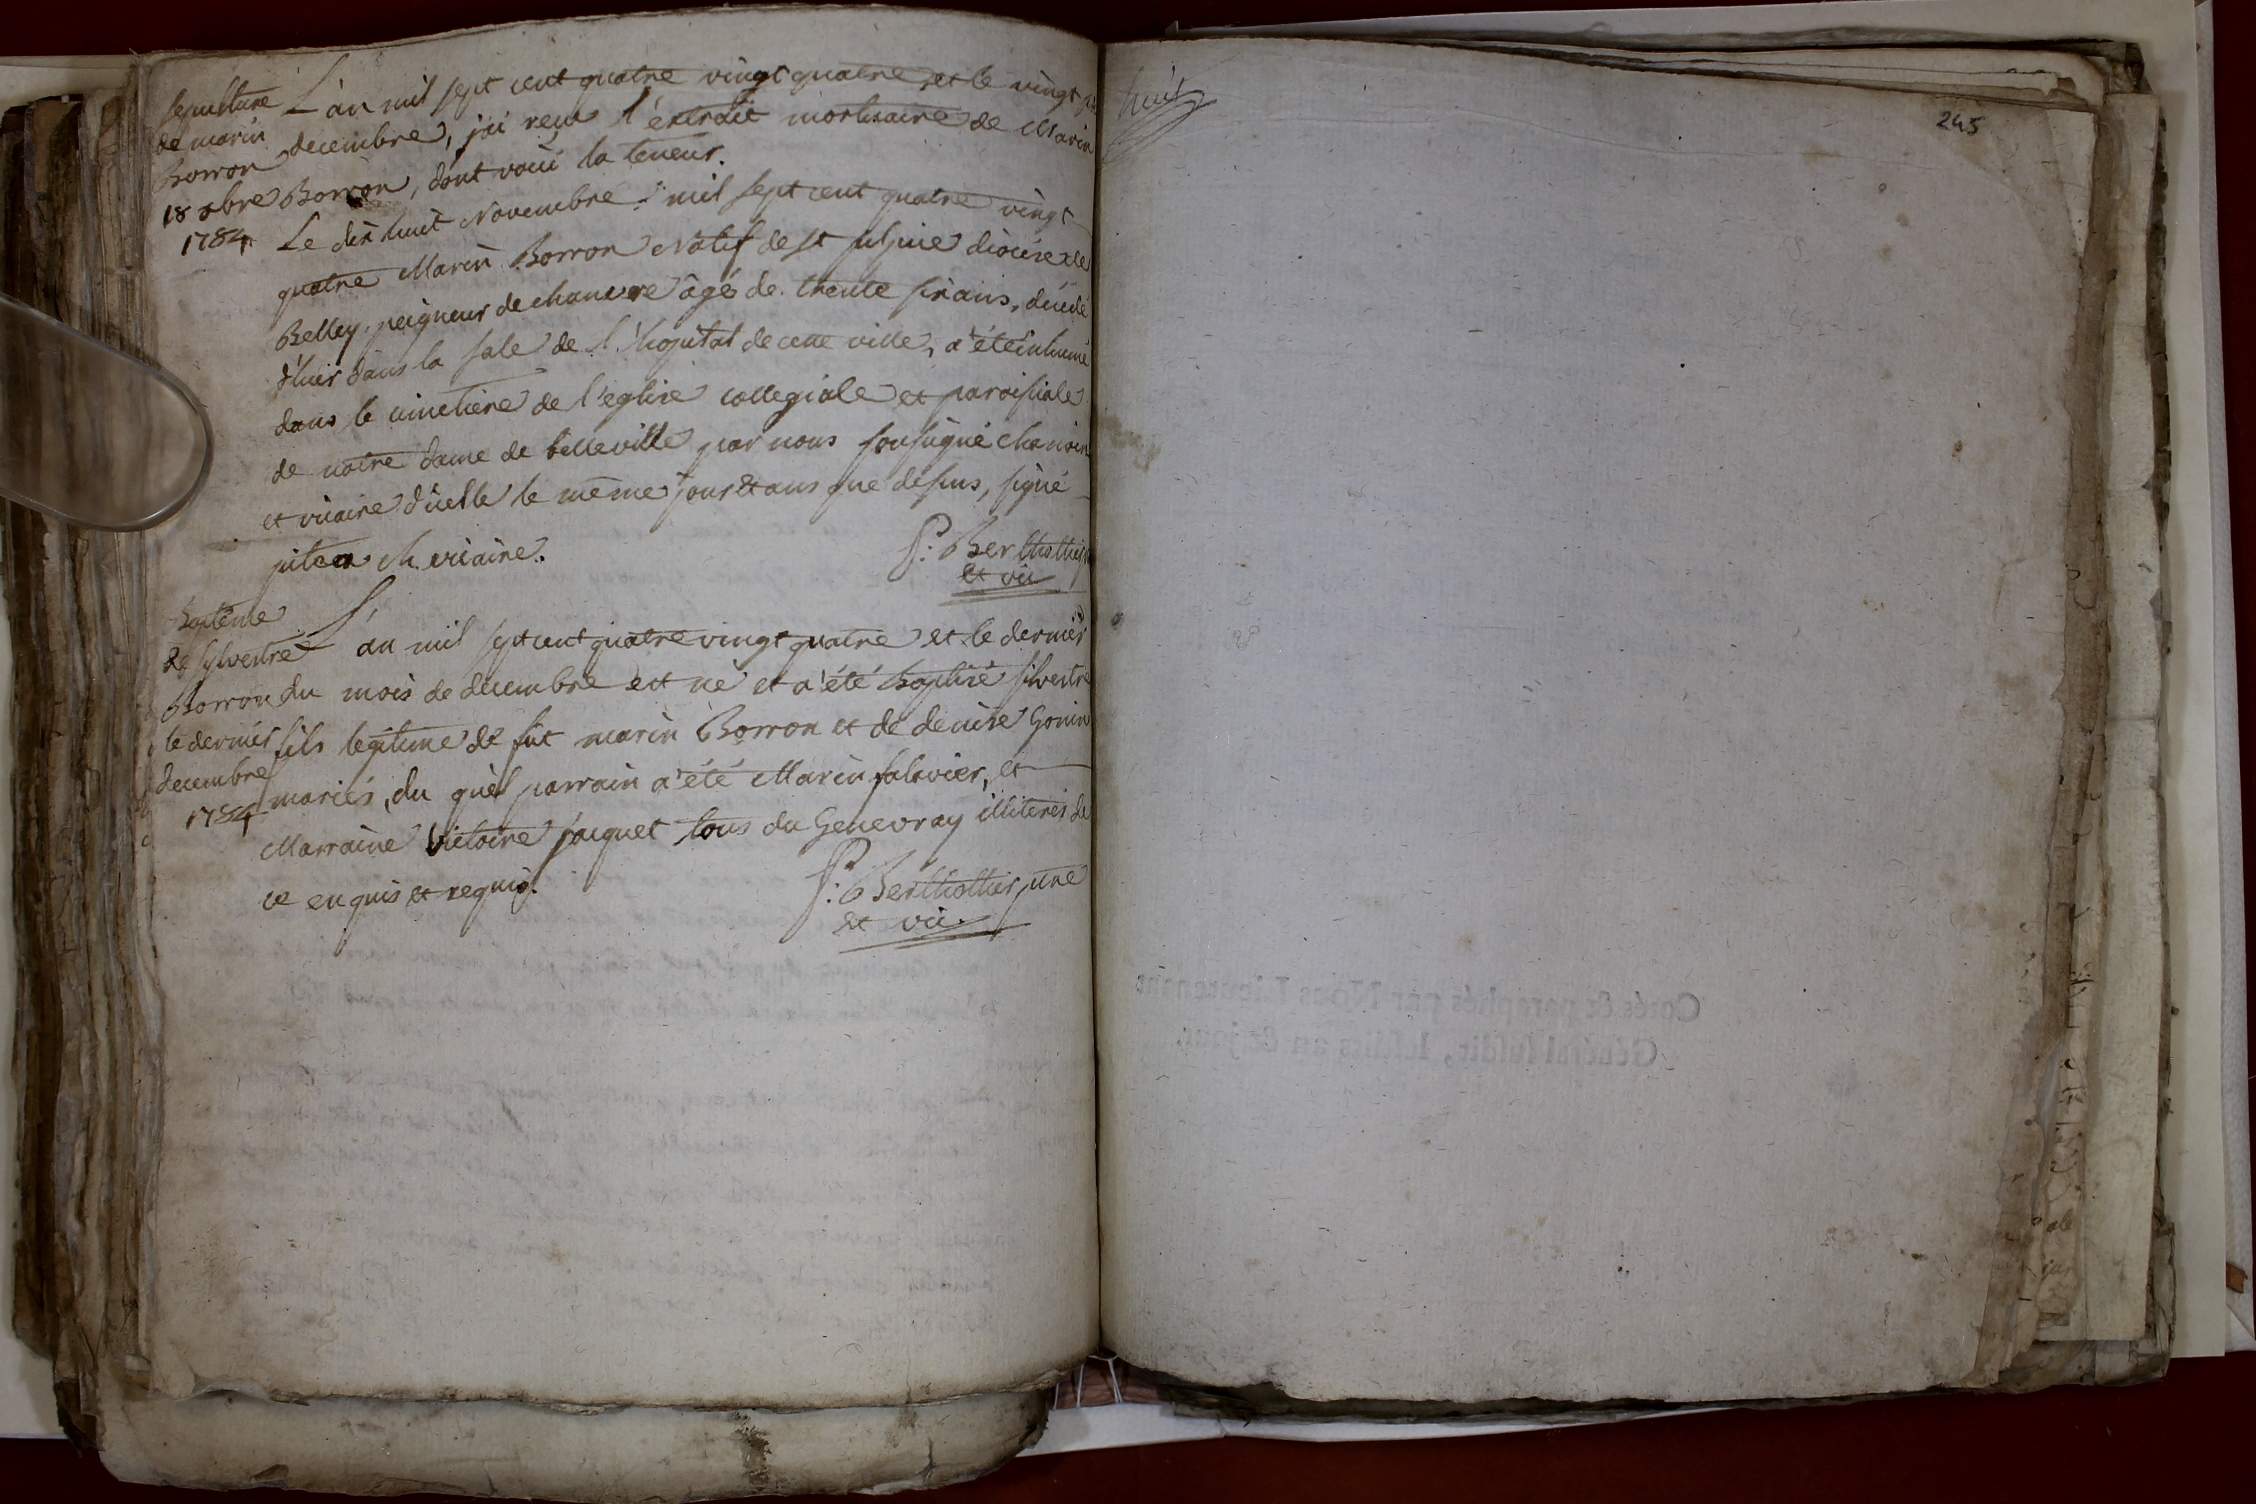 sepulture
de marin
Borron
18 9bre
1784
L'an mil sept cent quatre vingt quatre et le vingt
decembre, j'ai reçu l'extrait mortuaire de Marin
Borron, dont voici la teneur.
Le dix huit Novembre mil sept cent quatre vingt
quatre Marin Borron Natif de st sulpice diocèse de
Belley, peigneur de chanvre âgé de trente six ans, décédé
d'hier dans la sale de l'hopital de cette ville, a été inhumé
dans le cimetière de l'eglise collegiale et paroissiale
de notre dame de belleville par nous soussigné chanoine
et vicaire d'icelle le même jour et ans que dessus, signé
ch. vicaire.
P: Berthollier
et vic
baptême
de sylvestre
Borron
le dernier
decembre
1784
L'an mil sept cent quatre vingt quatre et le dernier
du mois de decembre est né et a été baptisé silvestre
fils legitime de fut marin Borron et de denise Gonin
mariés, du quel parrain a été Marin falavier, et
Marraine Victoire jacquet tous du Genevray illiterés de
ce enquis et requis.
P: Berthollier ptre
et vic.
huit
245
Cotés & paraphés par Nous Lieutenant
Général susdit, lesdits an & jour.